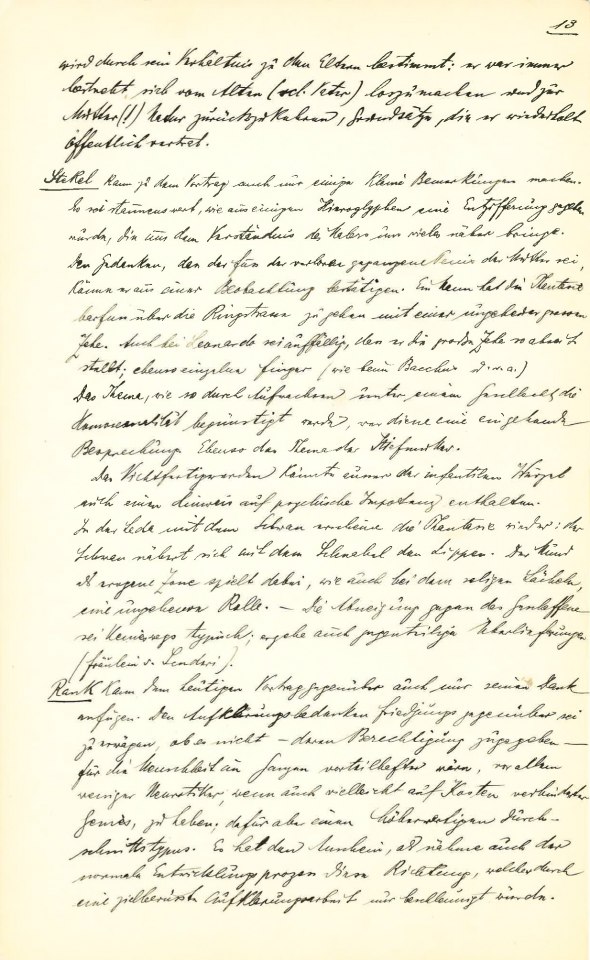 13
wird durch sein Verhältnis zu den Eltern bestimmt: er war immer
bestrebt, sich vom Alten (scl. Vater) loszumachen und zur
Mutter(!) Natur zurückzukehren, Grundsätze, die er wiederholt
öffentlich vertrat.
Stekel kann zu dem Vortrag auch nur einige kleine Bemerkungen machen.
Es sei staunenswert, wie aus einigen Hieroglyphen eine Entzifferung gegeben
wurde, die uns dem Verständnis des Malers um vieles näher bringe.
Den Gedanken, dass der Fuss der verloren gegangene Penis der Mutter sei,
könne er aus einer Beobachtung bestätigen. Ein Mann hat die Phantasie
barfuss über die Ringstrasse zu gehen mit einer ungeheuer grossen
Zehe. Auch bei Leonardo sei auffällig, dass er die grosse Zehe so abseits
stellt; ebenso einzelne Finger (wie beim Bacchus u.s.w.)
Das Thema, wie so durch Aufwachsen unter einem Geschlecht die
Homosexualität begünstigt werde, verdiene eine eingehende
Besprechung. Ebenso das Thema der Stiefmutter.
Das Nichtfertigwerden könnte ausser der infantilen Wurzel
auch einen Hinweis auf psychische Impotenz enthalten.
In der Leda mit dem Schwan erscheine die Phantasie wieder: der
Schwan nähert sich mit dem Schnabel den Lippen. Der Mund
als erogene Zone spielt dabei, wie auch bei dem seligen Lächeln,
eine ungeheure Rolle. — Die Abneigung gegen das
sei keineswegs typisch; ergebe auch gegenteilige Überlieferungen
(Fräulein v.
Rank kann dem heutigen Vortrag gegenüber auch nur seinen Dank
anfügen. Den Aufklärungsbedenken Friedjungs gegenüber sei
zu erwägen, ob es nicht — deren Berechtigung zugegeben —
für die Menschheit im Ganzen vorteilhafter wäre, vor allem
weniger Neurotiker, wenn auch vielleicht auf Kosten verhinderter
Genies, zu haben; dafür aber einen höherwertigen Durch-
schnittstypus. Es hat den Anschein, als nähme auch der
normale Entwicklungsprozess diese Richtung, welcher durch
eine zielbewusste Aufklärungsarbeit nur beschleunigt würde.